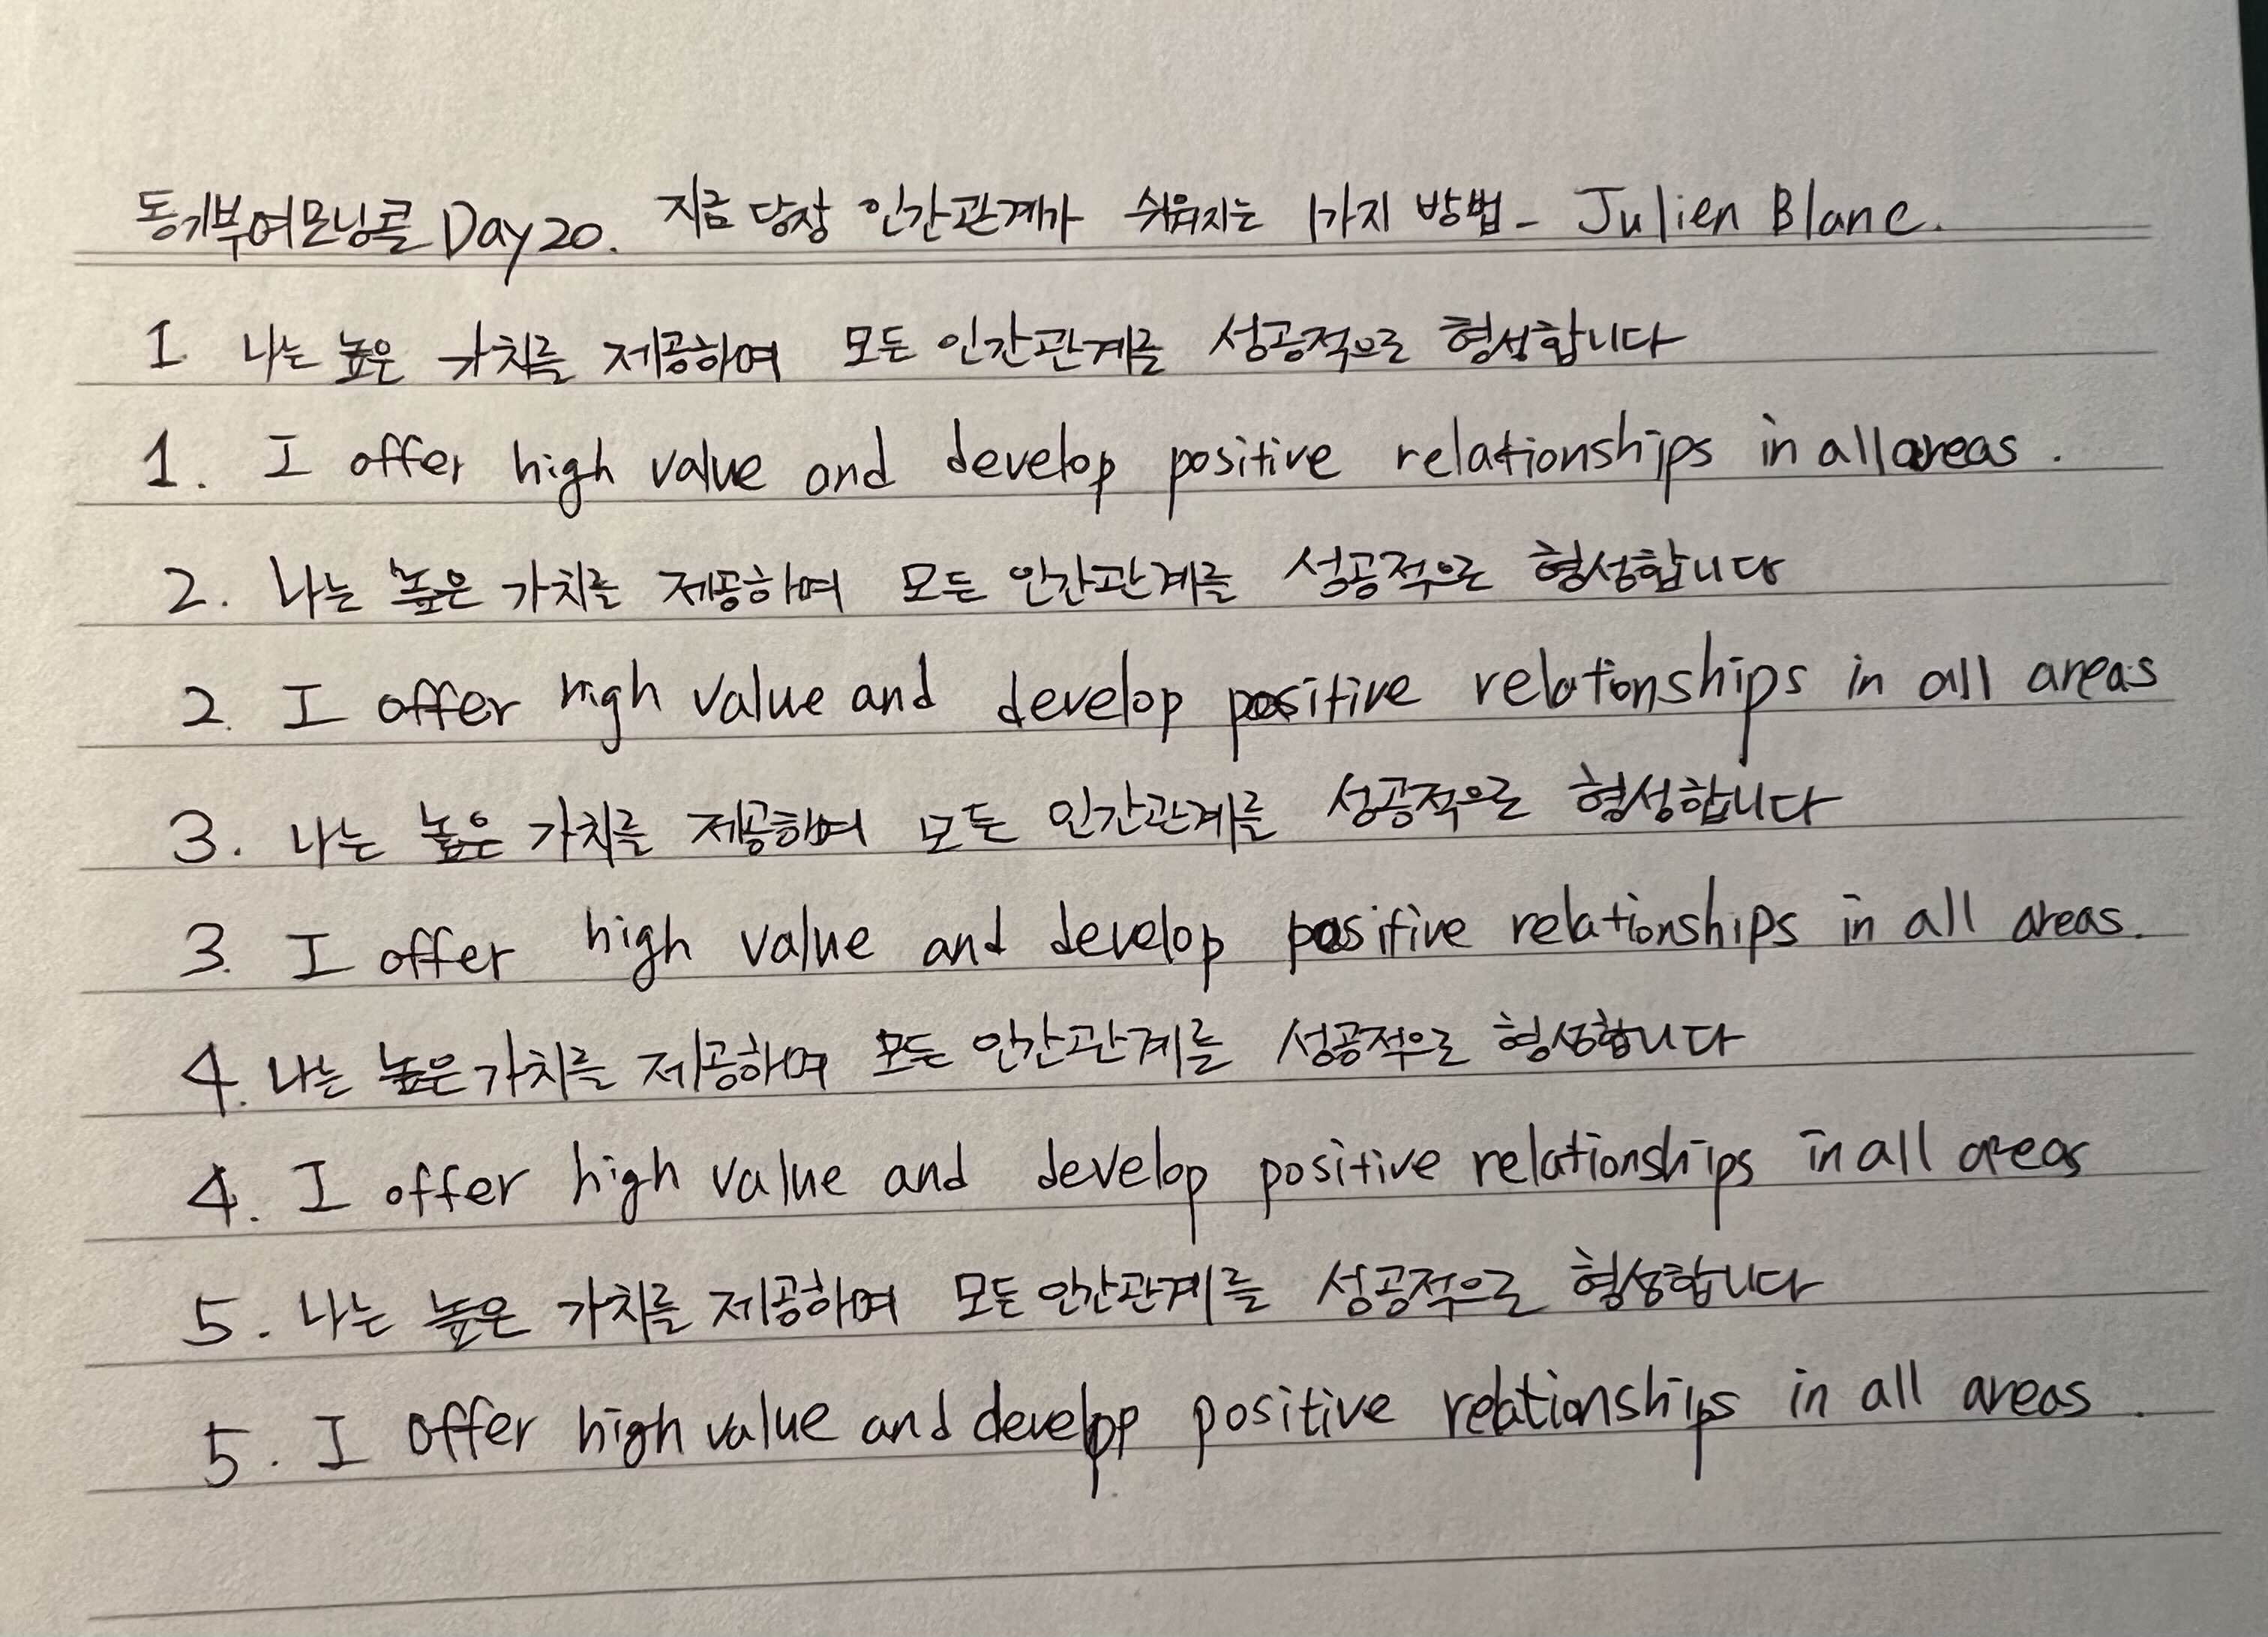 동기부여모닝콜 Day 20. 지금 당장 인간관계가 쉬워지는 1가지 방법 - Julien Blanc.
1 나는 높은 가치를 제공하여 모든 인간관계를 성공적으로 형성합니다
1. I offer high value and develop positive relationships in all areas.
2. 나는 높은 가치를 제공하여 모든 인간관계를 성공적으로 형성합니다
2. I offer high value and develop positive relationships in all areas
3. 나는 높은 가치를 제공하여 모든 인간관계를 성공적으로 형성합니다
3. I offer high value and develop positive relationships in all areas.
4. 나는 높은 가치를 제공하여 모든 인간관계를 성공적으로 형성합니다
4. I offer high value and develop positive relationships in all areas
5. 나는 높은 가치를 제공하여 모든 인간관계를 성공적으로 형성합니다
5. I offer high value and develop positive relationships in all areas.